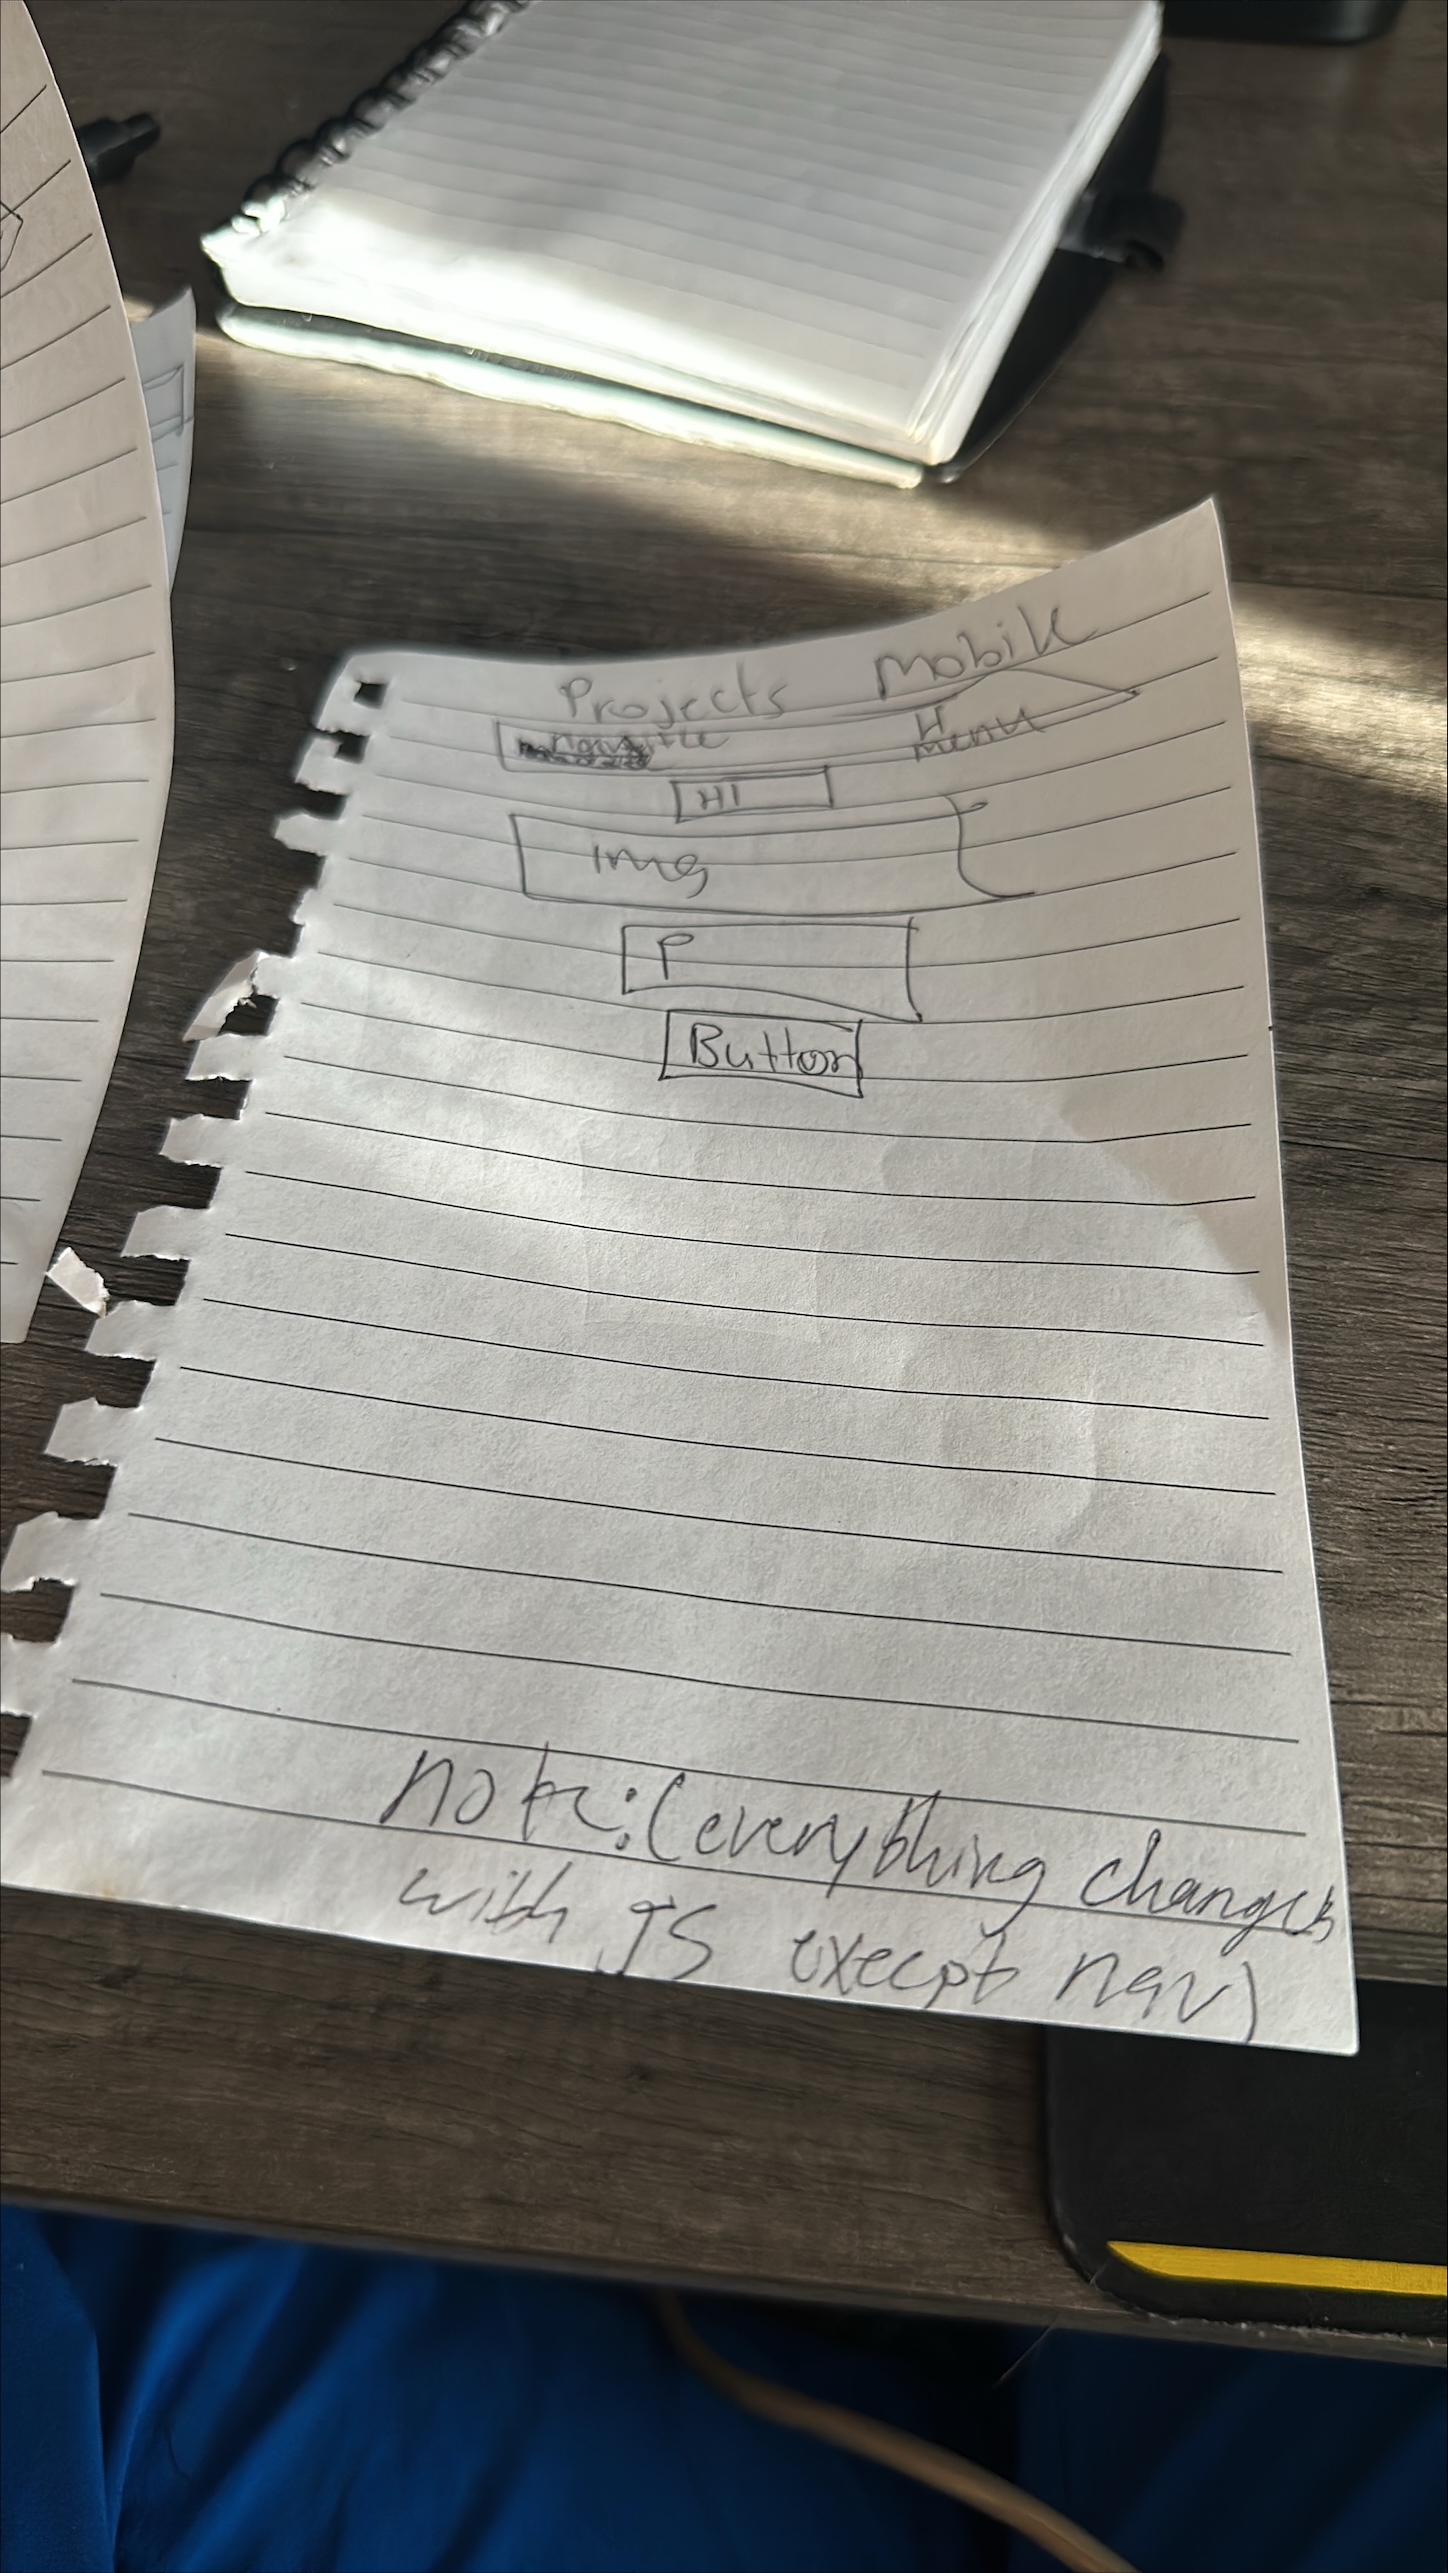 Projects Mobile
H
menu
H1
img
P
Button
note: (everything changes
with JS execpt nav)